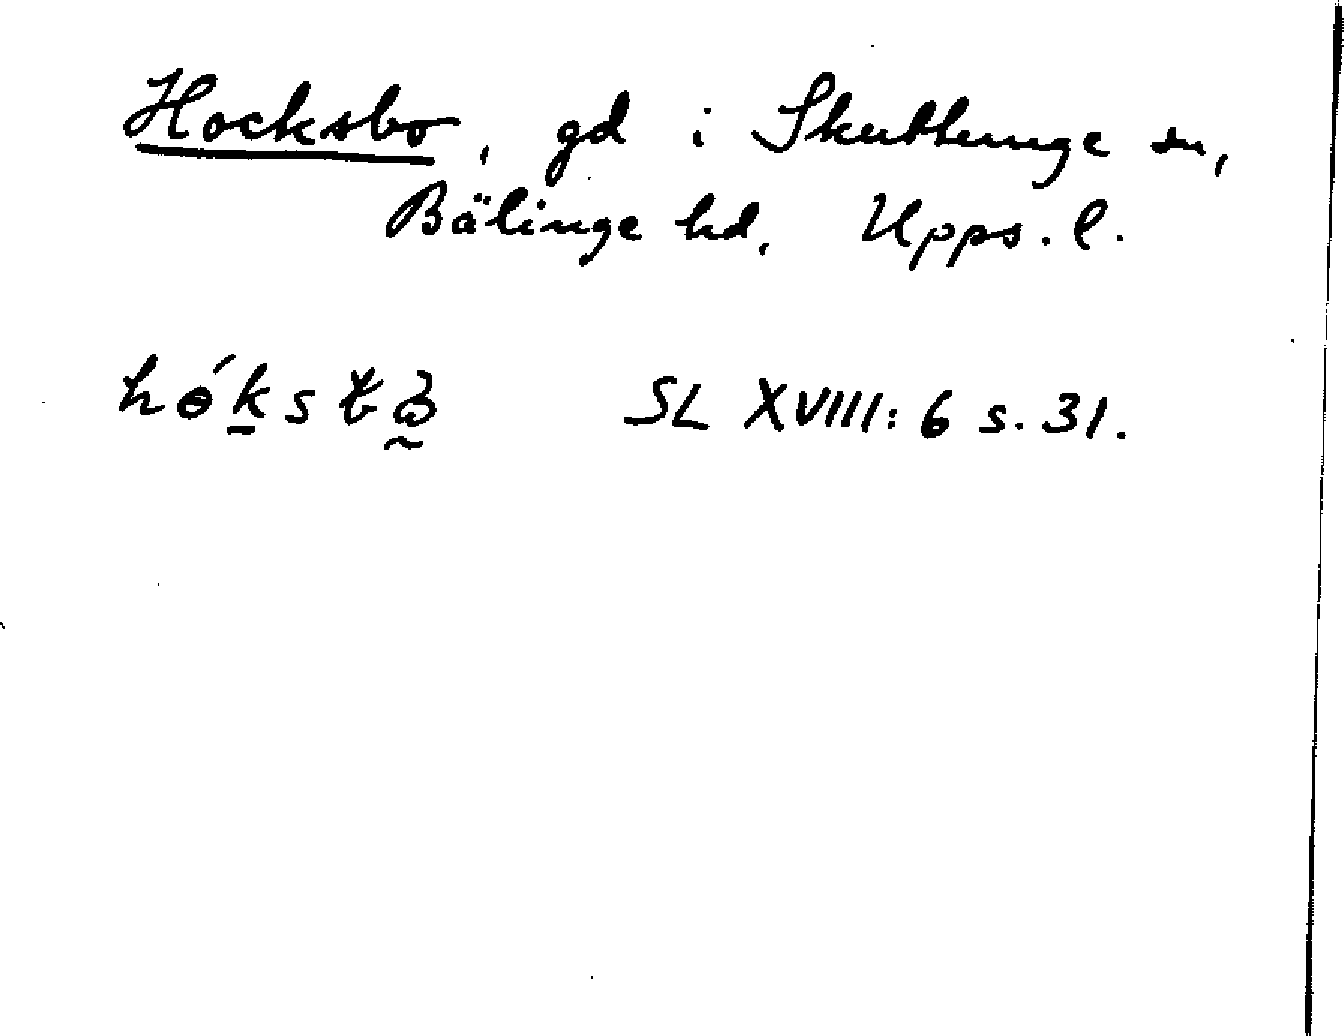 Hocksbo, gd i Skuttunge sn,
Bälinge hd, Upps. l.
SL XVIII: 6 s. 31.